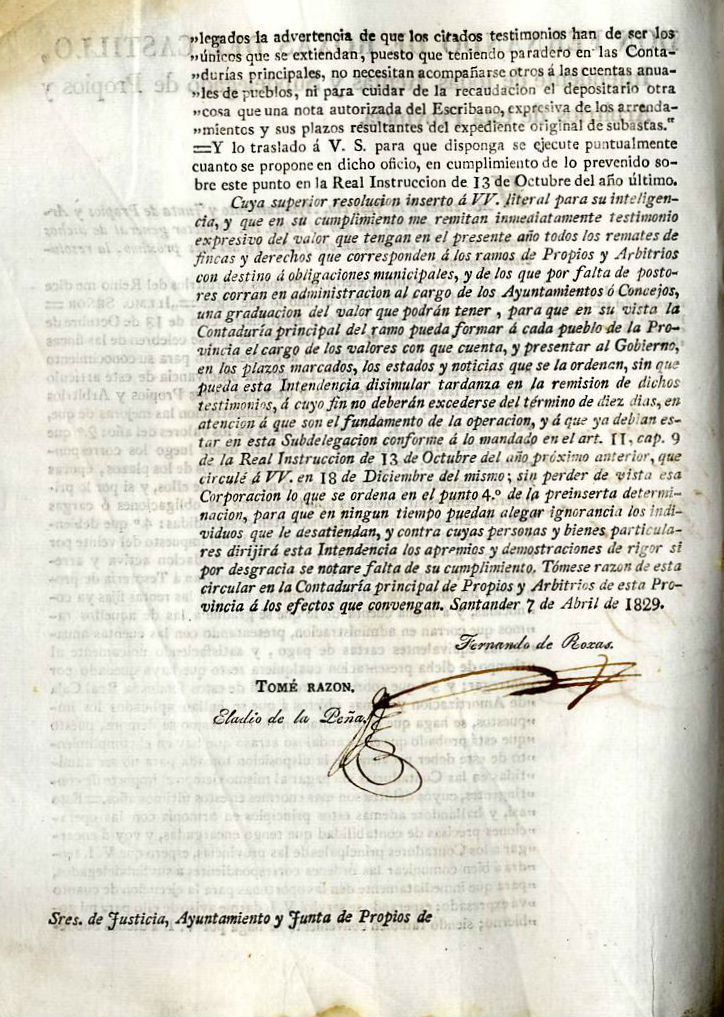 »legados la advertencia de que los citados testimonios han de ser los
»únicos que se extiendan, puesto que teniendo paradero en las Conta-
»durías principales, no necesitan acompañarse otros á las cuentas anua-
»les de pueblos, ni para cuidar de la recaudacion el depositario otra
»cosa que una nota autorizada del Escribano, expresiva de los arrenda-
»mientos y sus plazos resultantes del expediente original de subastas."
=Y lo traslado á V. S. para que disponga se ejecute puntualmente
cuanto se propone en dicho oficio, en cumplimiento de lo prevenido so-
bre este punto en la Real Instruccion de 13 de Octubre del año último.
Cuya superior resolucion inserto á VV. literal para su inteligen-
cia, y que en su cumplimiento me remitan inmediatamente testimonio
expresivo del valor que tengan en el presente año todos los remates de
fincas y derechos que corresponden á los ramos de Propios y Arbitrios
con destino á obligaciones municipales, y de los que por falta de posto-
res corran en administracion al cargo de los Ayuntamientos ó Concejos,
una graduacion del valor que podrán tener, para que en su vista la
Contaduría principal del ramo pueda formar á cada pueblo de la Pro-
vincia el cargo de los valores con que cuenta, y presentar al Gobierno,
en los plazos marcados, los estados y noticias que se la ordenan, sin que
pueda esta Intendencia disimular tardanza en la remision de dichos
testimonios, á cuyo fin no deberán excederse del término de diez dias, en
atencion á que son el fundamento de la operacion, y á que ya debian es-
tar en esta Subdelegacion conforme á lo mandado en el art. 11, cap. 9
de la Real Instruccion de 13 de Octubre del año próximo anterior, que
circulé á VV. en 18 de Diciembre del mismo; sin perder de vista esa
Corporacion lo que se ordena en el punto 4.º de la preinserta determi-
nacion, para que en ningun tiempo puedan alegar ignorancia los indi-
viduos que le desatiendan, y contra cuyas personas y bienes particula-
res dirijirá esta Intendencia los apremios y demostraciones de rigor si
por desgracia se notare falta de su cumplimiento. Tómese razon de esta
circular en la Contaduría principal de Propios y Arbitrios de esta Pro-
vincia á los efectos que convengan. Santander 7 de Abril de 1829.
Fernando de Roxas.
TOMÉ RAZON.
Eladio de la Peña.
Sres. de Justicia, Ayuntamiento y Junta de Propios de